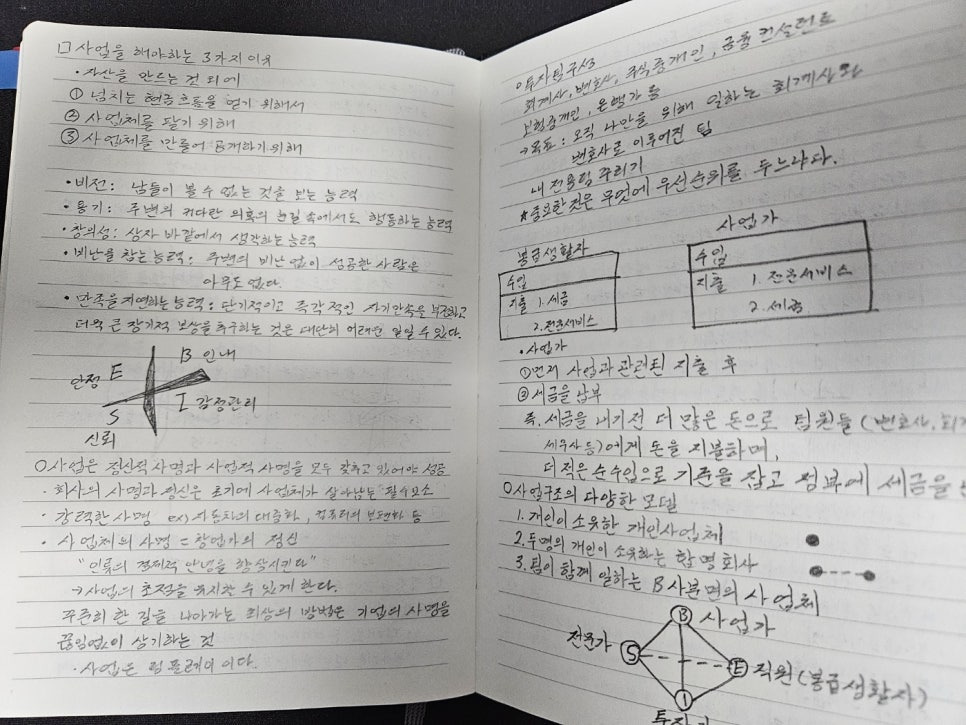 □ 사업을 해야하는 3가지 이유
· 자산을 만드는 것 외에
① 넘치는 현금흐름을 얻기 위해서
② 사업체를 팔기 위해
③ 사업체를 만들어 공개하기위해
· 비전: 남들이 볼 수 없는 것을 보는 능력
· 용기: 주변의 커다란 의혹의 눈길 속에서도 행동하는 능력
· 창의성: 상자 바깥에서 생각하는 능력
· 비난을 참는 능력: 주변의 비난 없이 성공한 사람은
아무도 없다.
· 만족을 지연하는 능력: 단기적이고 즉각적인 자기만족을 부정하고
더욱 큰 장기적 보상을 추구하는 것은 대단히 어려운 일일 수 있다.
B 인내
안정 E
I 감정관리
S
신뢰
○ 사업은 정신적 사명과 사업적 사명을 모두 갖추고 있어야 성공
· 회사의 사명과 정신은 초기에 사업체가 살아남는 필수요소
· 강력한 사명 ex) 자동차의 대중화, 컴퓨터의 보편화 등
· 사업체의 사명 = 창업가의 정신
"인류의 경제적 안녕을 향상시킨다"
→ 사업의 초점을 유지할 수 있게 한다.
꾸준히 한 길을 나아가는 최상의 방법은 기업의 사명을
끊임없이 상기하는 것
· 사업은 팀 플레이 이다.
○ 투자팀 구성
회계사, 변호사, 주식중개인, 금융 컨설턴트
보험중개인, 은행가 등
→ 목표: 오직 나만을 위해 일하는 회계사와
변호사로 이루어진 팀
내 전용팀 꾸리기
★ 중요한 것은 무엇에 우선순위를 두느냐다.
봉급생활자
수입
지출 1. 세금
2. 전문서비스
사업가
수입
지출 1. 전문서비스
2. 세금
· 사업가
① 먼저 사업과 관련된 지출 후
② 세금을 납부
즉, 세금을 내기전 더 많은 돈으로 팀원들 (변호사, 회계
세무사 등)에게 돈을 지불하며,
더 적은 순수입으로 기준을 잡고 정부에 세금을
○ 사업구조의 다양한 모델
1. 개인이 소유한 개인사업체
2. 두명의 개인이 소유하는 합명회사
3. 팀이 함께 일하는 B사분면의 사업체
B 사업가
전문가 S
E 직원 (봉급생활자)
I